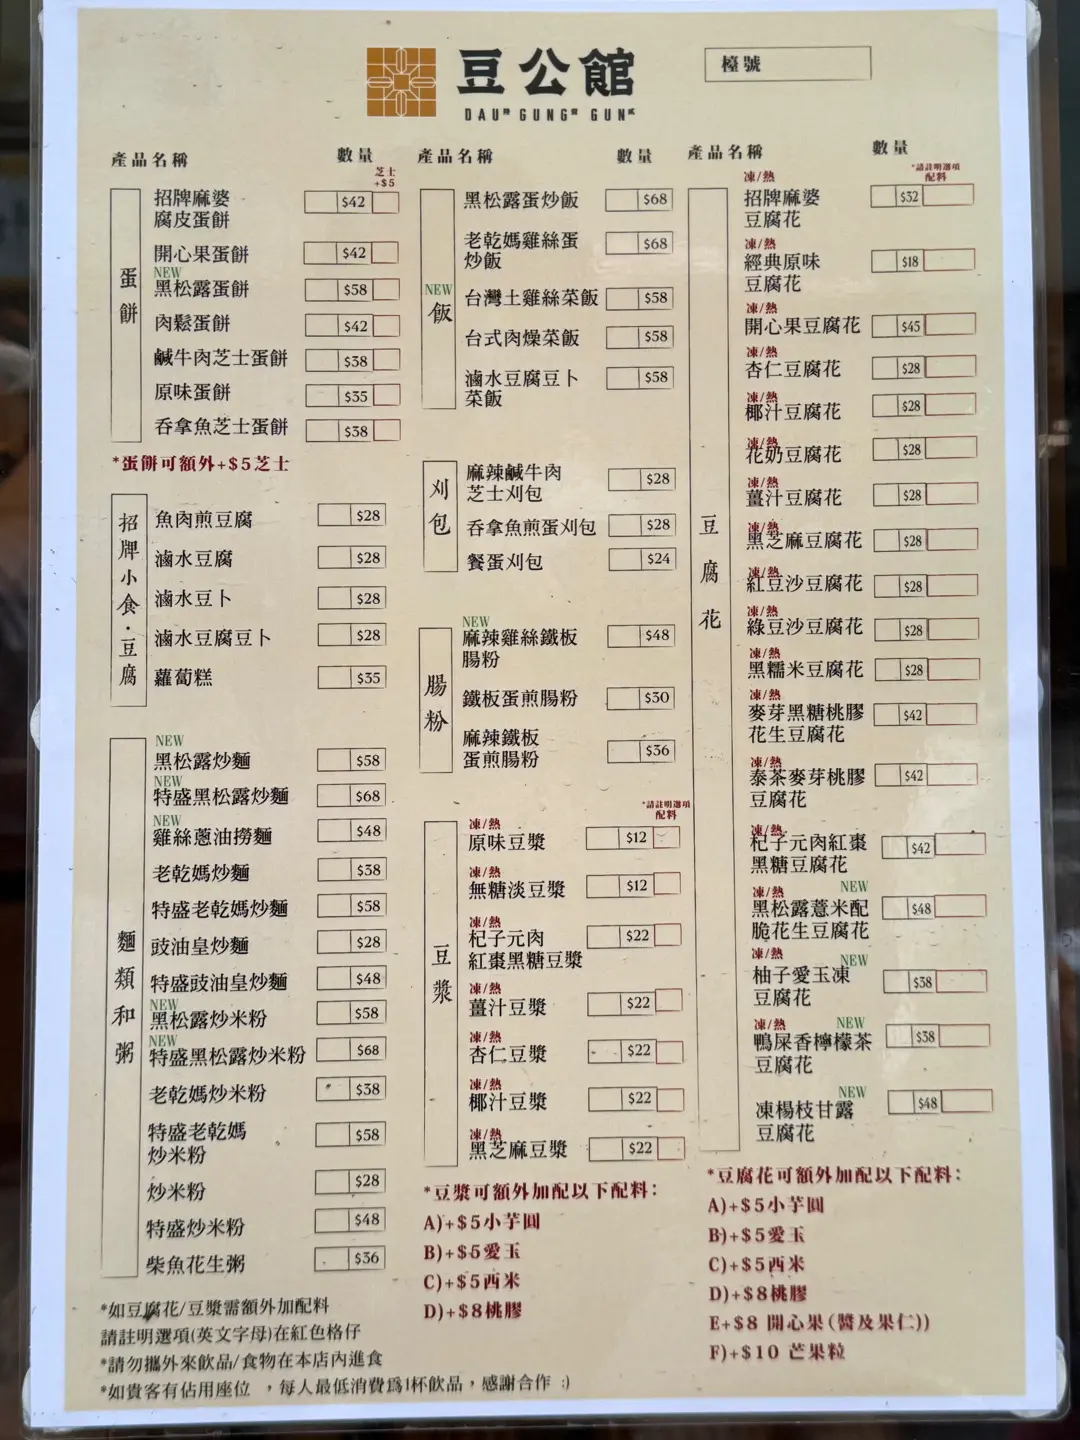 豆公館
DAU GUNG GUN
檯號
產品名稱 數量
芝士
+$5
蛋餅
招牌麻婆
腐皮蛋餅 $42
開心果蛋餅 $42
NEW
黑松露蛋餅 $58
肉鬆蛋餅 $42
鹹牛肉芝士蛋餅 $38
原味蛋餅 $35
吞拿魚芝士蛋餅 $38
*蛋餅可額外+$5芝士
招牌小食·豆腐
魚肉煎豆腐 $28
滷水豆腐 $28
滷水豆卜 $28
滷水豆腐豆卜 $28
蘿蔔糕 $35
麵類和粥
NEW
黑松露炒麵 $58
NEW
特盛黑松露炒麵 $68
NEW
雞絲蔥油撈麵 $48
老乾媽炒麵 $38
特盛老乾媽炒麵 $58
豉油皇炒麵 $28
特盛豉油皇炒麵 $48
NEW
黑松露炒米粉 $58
NEW
特盛黑松露炒米粉 $68
老乾媽炒米粉 $38
特盛老乾媽
炒米粉 $58
炒米粉 $28
特盛炒米粉 $48
柴魚花生粥 $36
*如豆腐花/豆漿需額外加配料
請註明選項(英文字母)在紅色格仔
*請勿攜外來飲品/食物在本店內進食
*如貴客有佔用座位 ，每人最低消費爲1杯飲品，感謝合作 :)
產品名稱 數量
NEW
飯
黑松露蛋炒飯 $68
老乾媽雞絲蛋
炒飯 $68
台灣土雞絲菜飯 $58
台式肉燥菜飯 $58
滷水豆腐豆卜
菜飯 $58
刈包
麻辣鹹牛肉
芝士刈包 $28
吞拿魚煎蛋刈包 $28
餐蛋刈包 $24
腸粉
NEW
麻辣雞絲鐵板
腸粉 $48
鐵板蛋煎腸粉 $30
麻辣鐵板
蛋煎腸粉 $36
*請註明選項
配料
豆漿
凍/熱
原味豆漿 $12
凍/熱
無糖淡豆漿 $12
凍/熱
杞子元肉
紅棗黑糖豆漿 $22
凍/熱
薑汁豆漿 $22
凍/熱
杏仁豆漿 $22
凍/熱
椰汁豆漿 $22
凍/熱
黑芝麻豆漿 $22
*豆漿可額外加配以下配料：
A)+$5小芋圓
B)+$5愛玉
C)+$5西米
D)+$8桃膠
產品名稱 數量
*請註明選項
配料
豆腐花
凍/熱
招牌麻婆
豆腐花 $32
凍/熱
經典原味
豆腐花 $18
凍/熱
開心果豆腐花 $45
凍/熱
杏仁豆腐花 $28
凍/熱
椰汁豆腐花 $28
凍/熱
花奶豆腐花 $28
凍/熱
薑汁豆腐花 $28
凍/熱
黑芝麻豆腐花 $28
凍/熱
紅豆沙豆腐花 $28
凍/熱
綠豆沙豆腐花 $28
凍/熱
黑糯米豆腐花 $28
凍/熱
麥芽黑糖桃膠
花生豆腐花 $42
凍/熱
泰茶麥芽桃膠
豆腐花 $42
凍/熱
杞子元肉紅棗
黑糖豆腐花 $42
凍/熱 NEW
黑松露薏米配
脆花生豆腐花 $48
凍/熱 NEW
柚子愛玉凍
豆腐花 $38
凍/熱 NEW
鴨屎香檸檬茶
豆腐花 $38
NEW
凍楊枝甘露
豆腐花 $48
*豆腐花可額外加配以下配料：
A)+$5小芋圓
B)+$5愛玉
C)+$5西米
D)+$8桃膠
E+$8 開心果(醬及果仁))
F)+$10 芒果粒